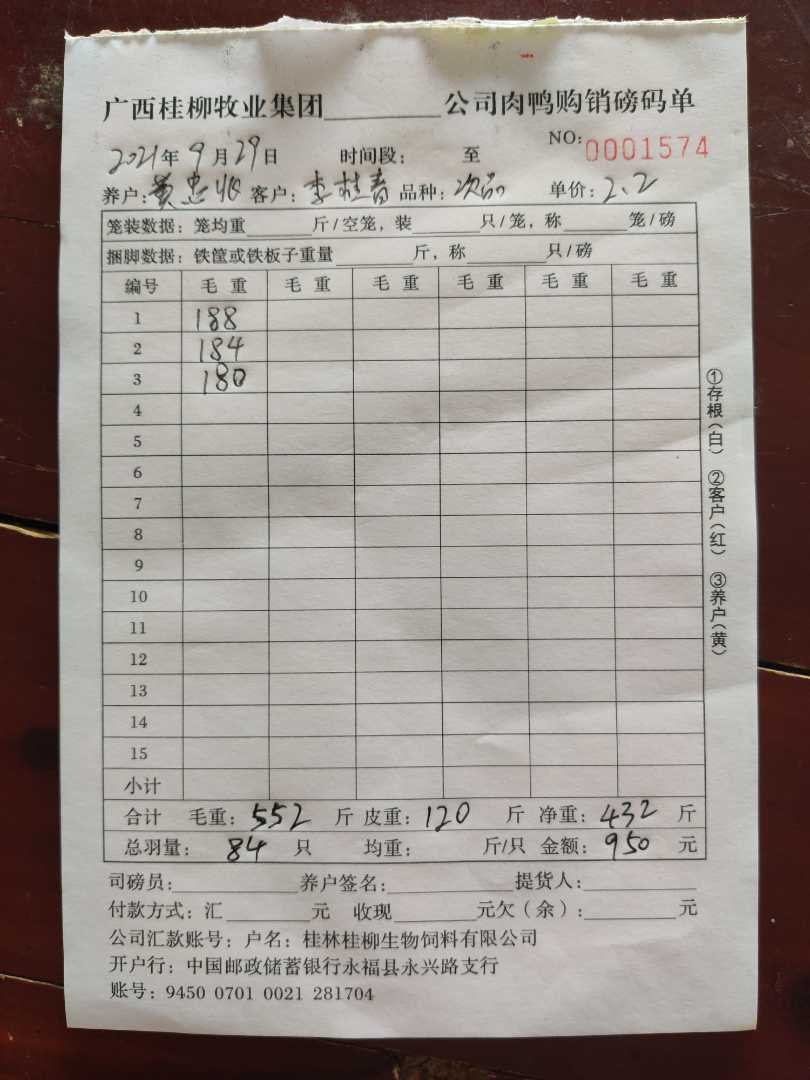 广西桂柳牧业集团________公司肉鸭购销磅码单
NO: 0001574
2021年 9月 29日 时间段： 至
养户：黄忠 客户：李桂青 品种：次品 单价：2.2
笼装数据：笼均重______斤/空笼，装______只/笼，称______笼/磅
捆脚数据：铁筐或铁板子重量______斤，称______只/磅
编号 毛重 毛重 毛重 毛重 毛重 毛重
1 188
2 184
3 180
4
5
6
7
8
9
10
11
12
13
14
15
小计
合计 毛重：552 斤 皮重：120 斤 净重：432 斤
总羽量：84 只 均重： 斤/只 金额：950 元
司磅员：________养户签名：________提货人：________
付款方式：汇______元 收现______元欠（余）：______元
公司汇款账号：户名：桂林桂柳生物饲料有限公司
开户行：中国邮政储蓄银行永福县永兴路支行
账号：9450 0701 0021 281704
①存根（白） ②客户（红） ③养户（黄）